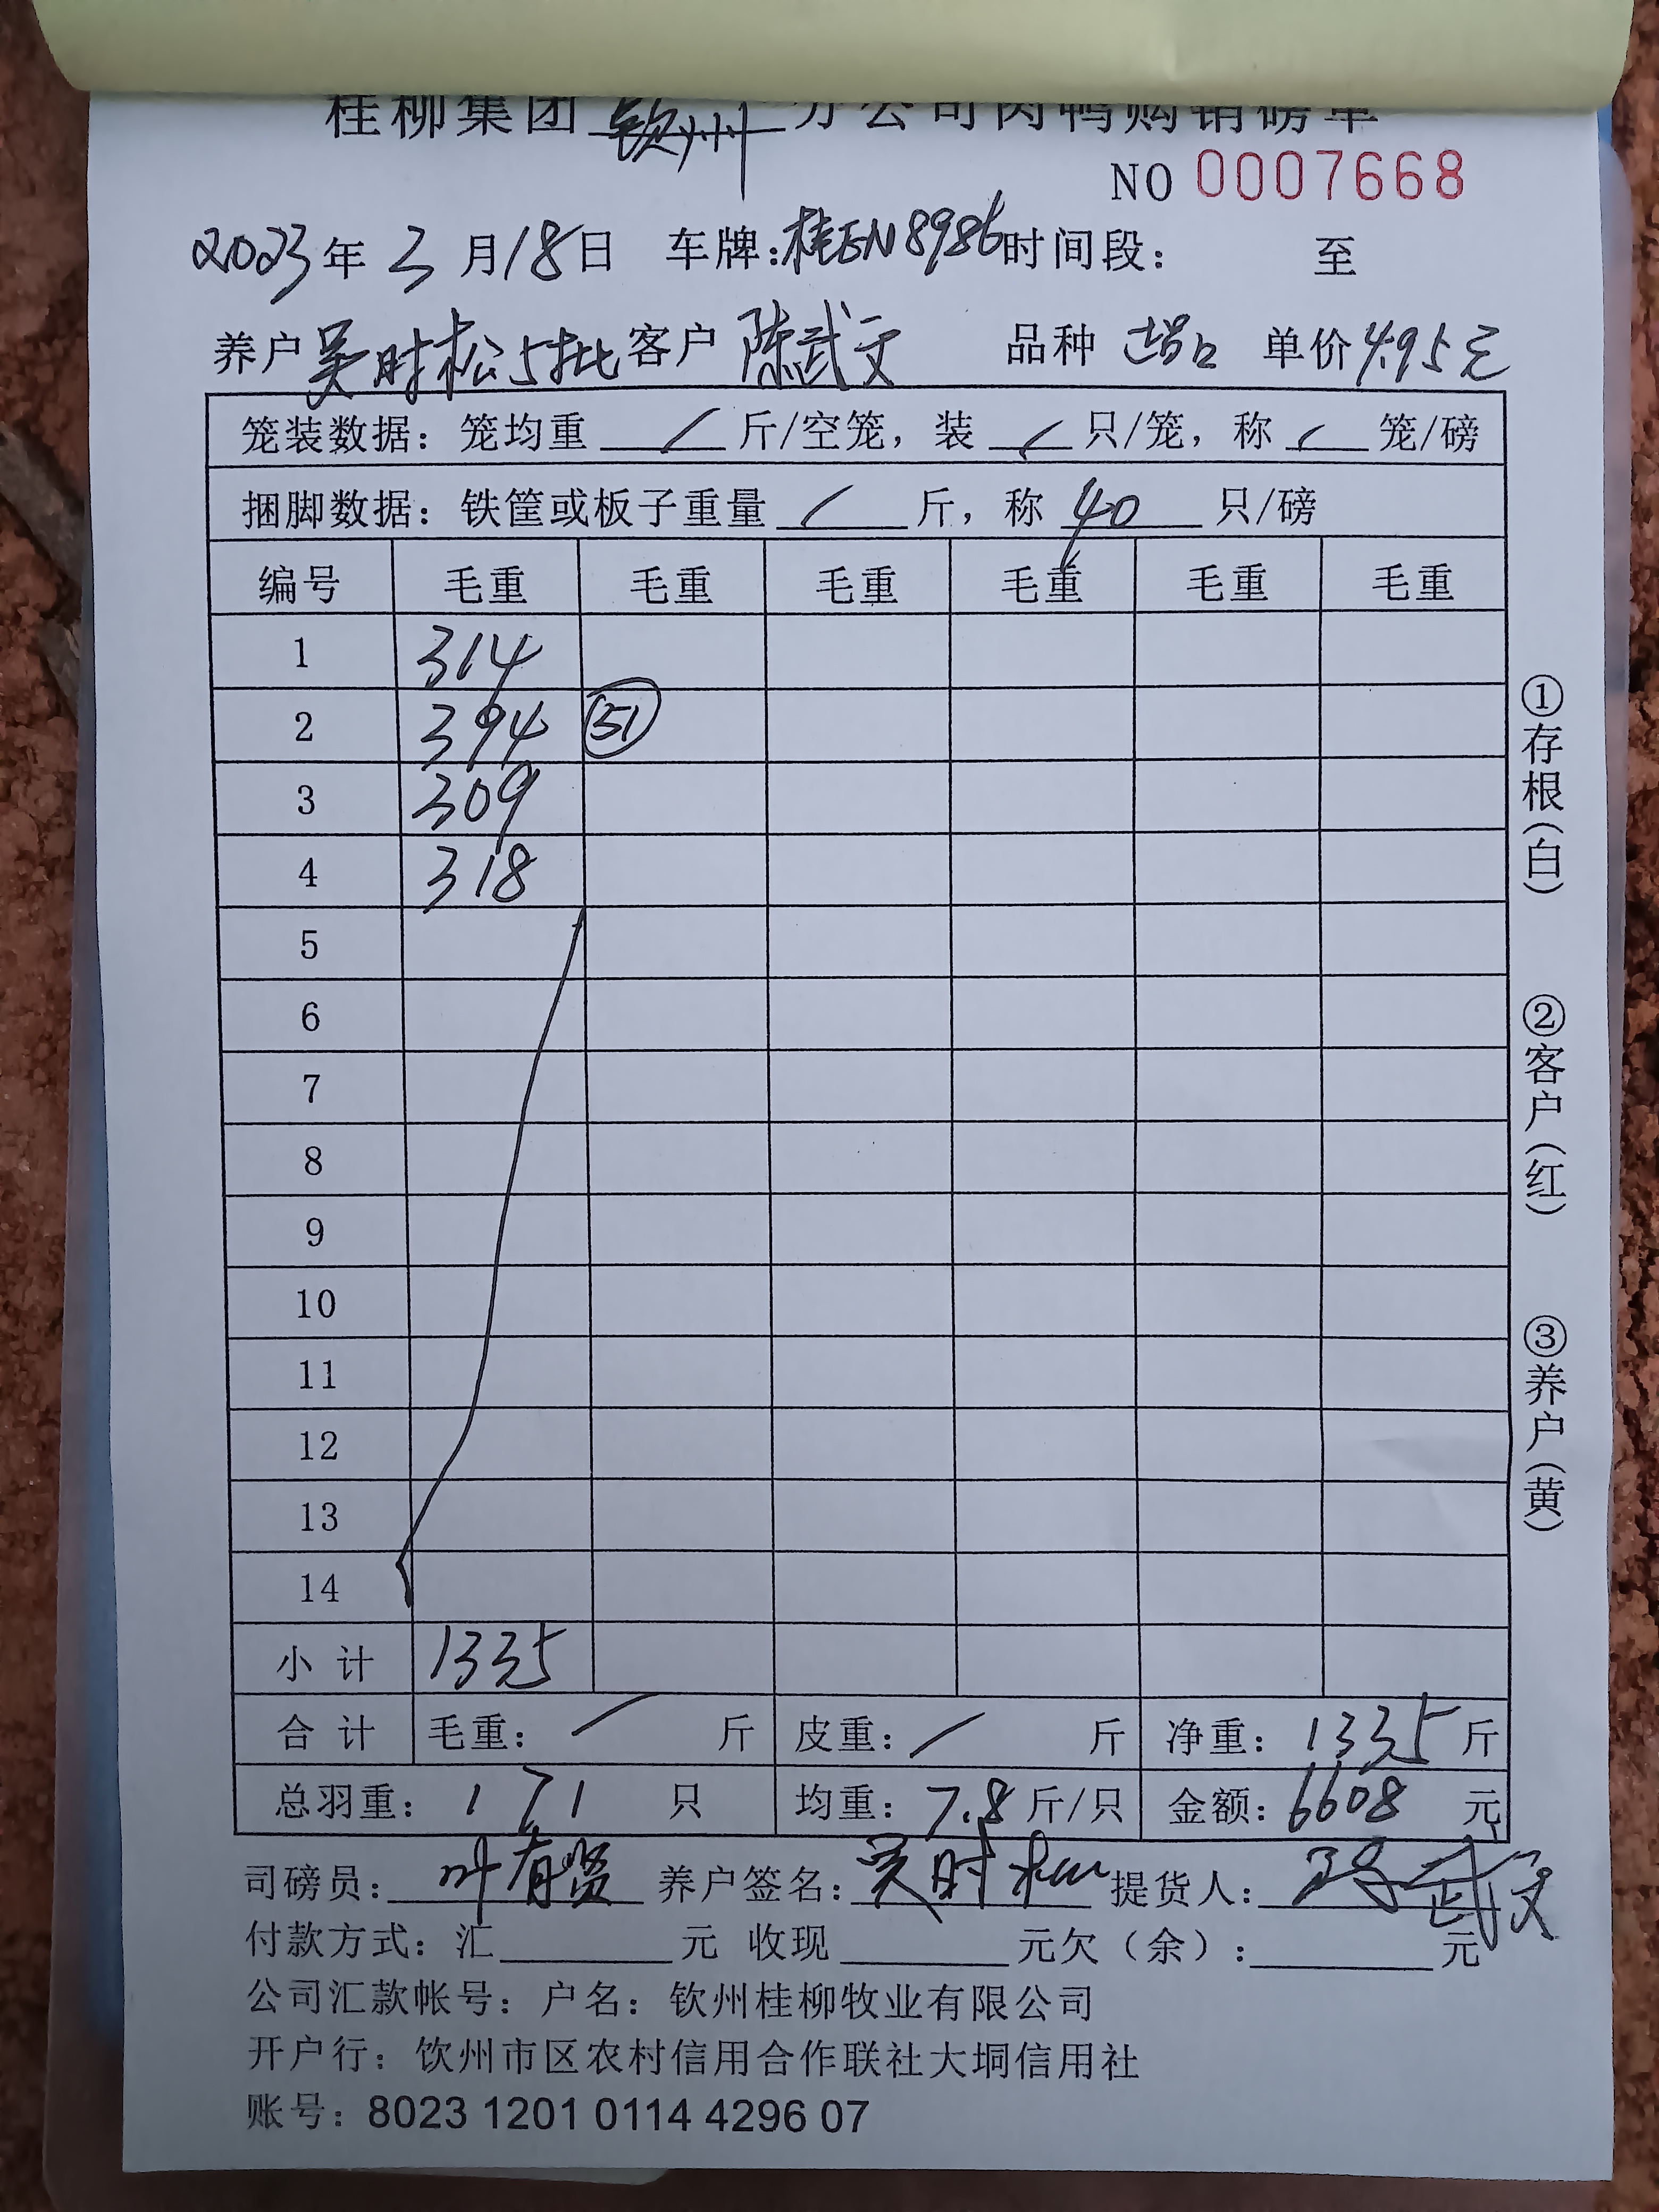 桂柳集团 钦州 分公司肉鸭购销磅单
NO 0007668
2023年 3月18日 车牌:桂EN8986 时间段: 至
养户 吴时松5批 客户 陈武文 品种 单价4.95元
笼装数据: 笼均重 / 斤/空笼, 装 / 只/笼, 称 / 笼/磅
捆脚数据: 铁筐或板子重量 / 斤, 称 40 只/磅
编号 毛重 毛重 毛重 毛重 毛重 毛重
1 314
2 394 51
3 309
4 318
5
6
7
8
9
10
11
12
13
14
小计 1335
合计 毛重: / 斤 皮重: / 斤 净重: 1335 斤
总羽重: 171 只 均重: 7.8 斤/只 金额: 6608 元
司磅员: 叶有贤 养户签名: 吴时松 提货人: 陈武文
付款方式: 汇 元 收现 元欠(余): 元
公司汇款帐号: 户名: 钦州桂柳牧业有限公司
开户行: 钦州市区农村信用合作联社大垌信用社
账号: 8023 1201 0114 4296 07
①存根(白)
②客户(红)
③养户(黄)